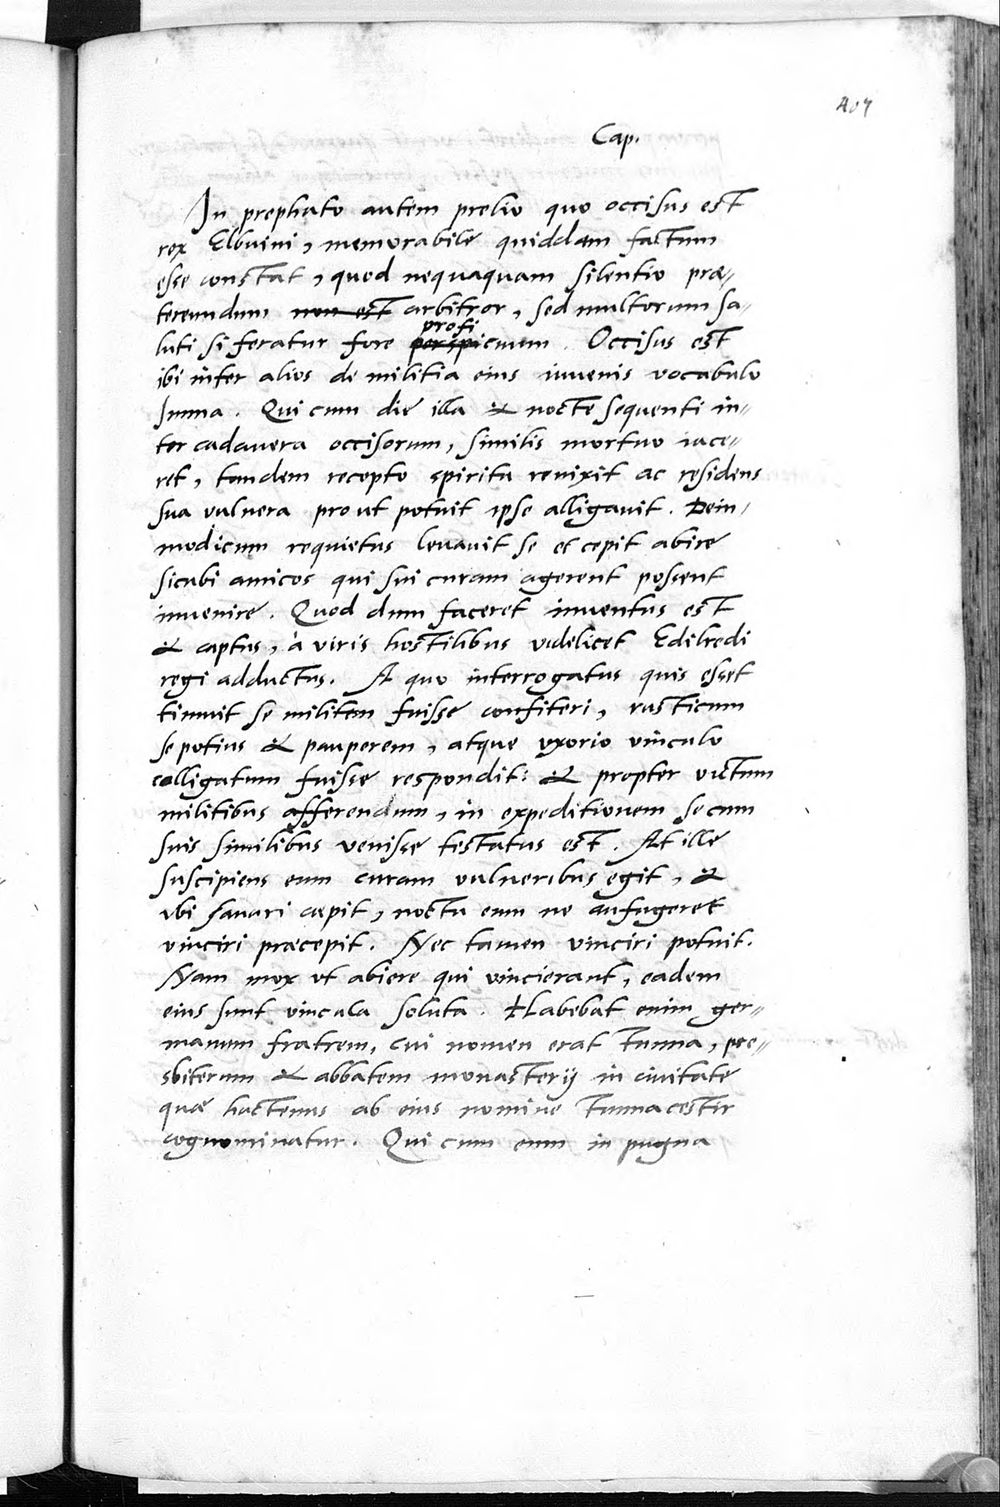 407
Cap.
In prephato autem prelio quo occisus est
rex Elbuini, memorabile quiddam factum
esse constat, quod nequaquam silentio præ-
tereundum non est arbitror, sed multorum sa-
luti si feratur fore perspicuum profi. Occisus est
ibi inter alios de militia eius iuuenis vocabulo
Imma. Qui cum die illa & nocte sequenti in-
ter cadauera occisorum, similis mortuo iace-
ret, tandem recepto spiritu reuixit ac residens
sua vulnera prout potuit ipse alligauit. Dein-
modicum requietus leuauit se et cepit abire
sicubi amicos qui sui curam agerent possent
inuenire. Quod dum faceret inuentus est
& captus, à viris hostilibus videlicet Edilredi
regi adductus. A quo interrogatus quis esset
timuit se militem fuisse confiteri, rusticum
se potius & pauperem, atque vxorio vinculo
colligatum fuisse respondit: & propter victum
militibus afferendum, in expeditionem se cum
suis similibus venisse testatus est. At ille
suscipiens eum curam vulneribus egit, &
vbi sanari cæpit, noctu eum ne aufugeret
vinciri præcepit. Nec tamen vinciri potuit.
Nam mox vt abiere qui vincierant, eadem
eius sunt vincula soluta. Habebat enim ger-
manum fratrem, cui nomen erat Tunna, pre-
sbiterum & abbatem monasterij in ciuitate
quæ hactenus ab eius nomine Tunnacestir
cognominatur. Qui cum eum in pugna